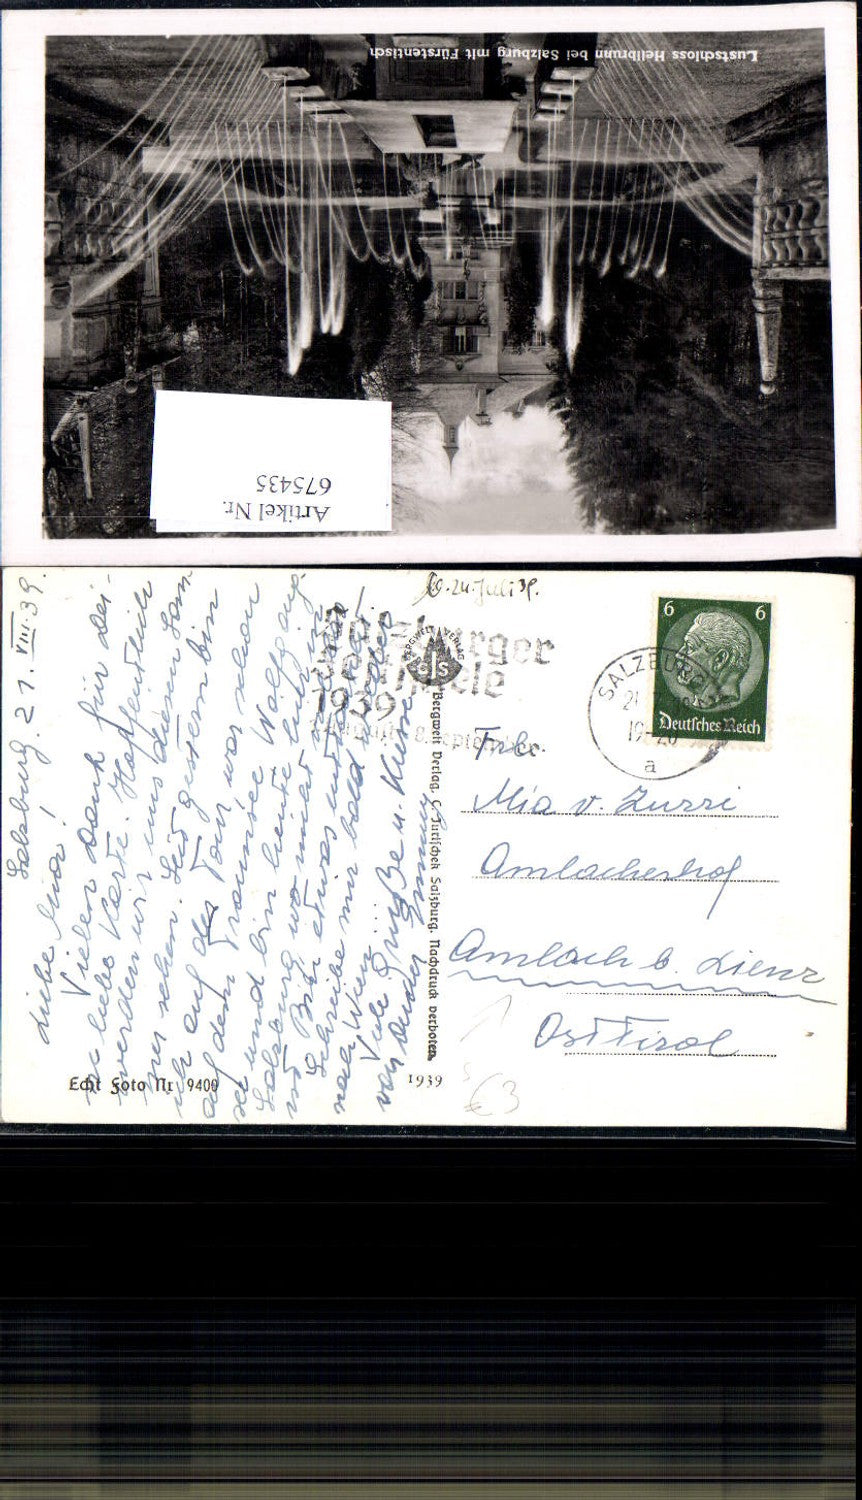 Lustschloss Hellbrunn bei Salzburg mit Fürstentisch
Artikel Nr.
675435
Salzburg. 21. VIII. 39.
Liebe Mia!
Vielen Dank für Dei-
ne liebe Karte. Hoffentlich
werden wir uns diesen Som-
mer sehen. Seit gestern bin
ich auf der Tour war schon
auf dem Traunsee Wolfgang-
see und bin heute hier in
Salzburg wo nicht
Bitte etwas
Schreibe mir bald wieder
nach Wien...
Viele Grüße u. Küsse
von Deiner Emmy
Echt Foto Nr 9400
1939
Bergwelt Verlag, C. Jurischek Salzburg. Nachdruck verboten
BERGWELT VERLAG
CJS
19.-24. Juli 39.
Salzburger
Festspiele
1939
1. August - 8. September
SALZBURG
19-20
a
6 6
Deutsches Reich
Frl.
Mia v. Zurri
Amlacherhof
Amlach b. Lienz
Osttirol
€3